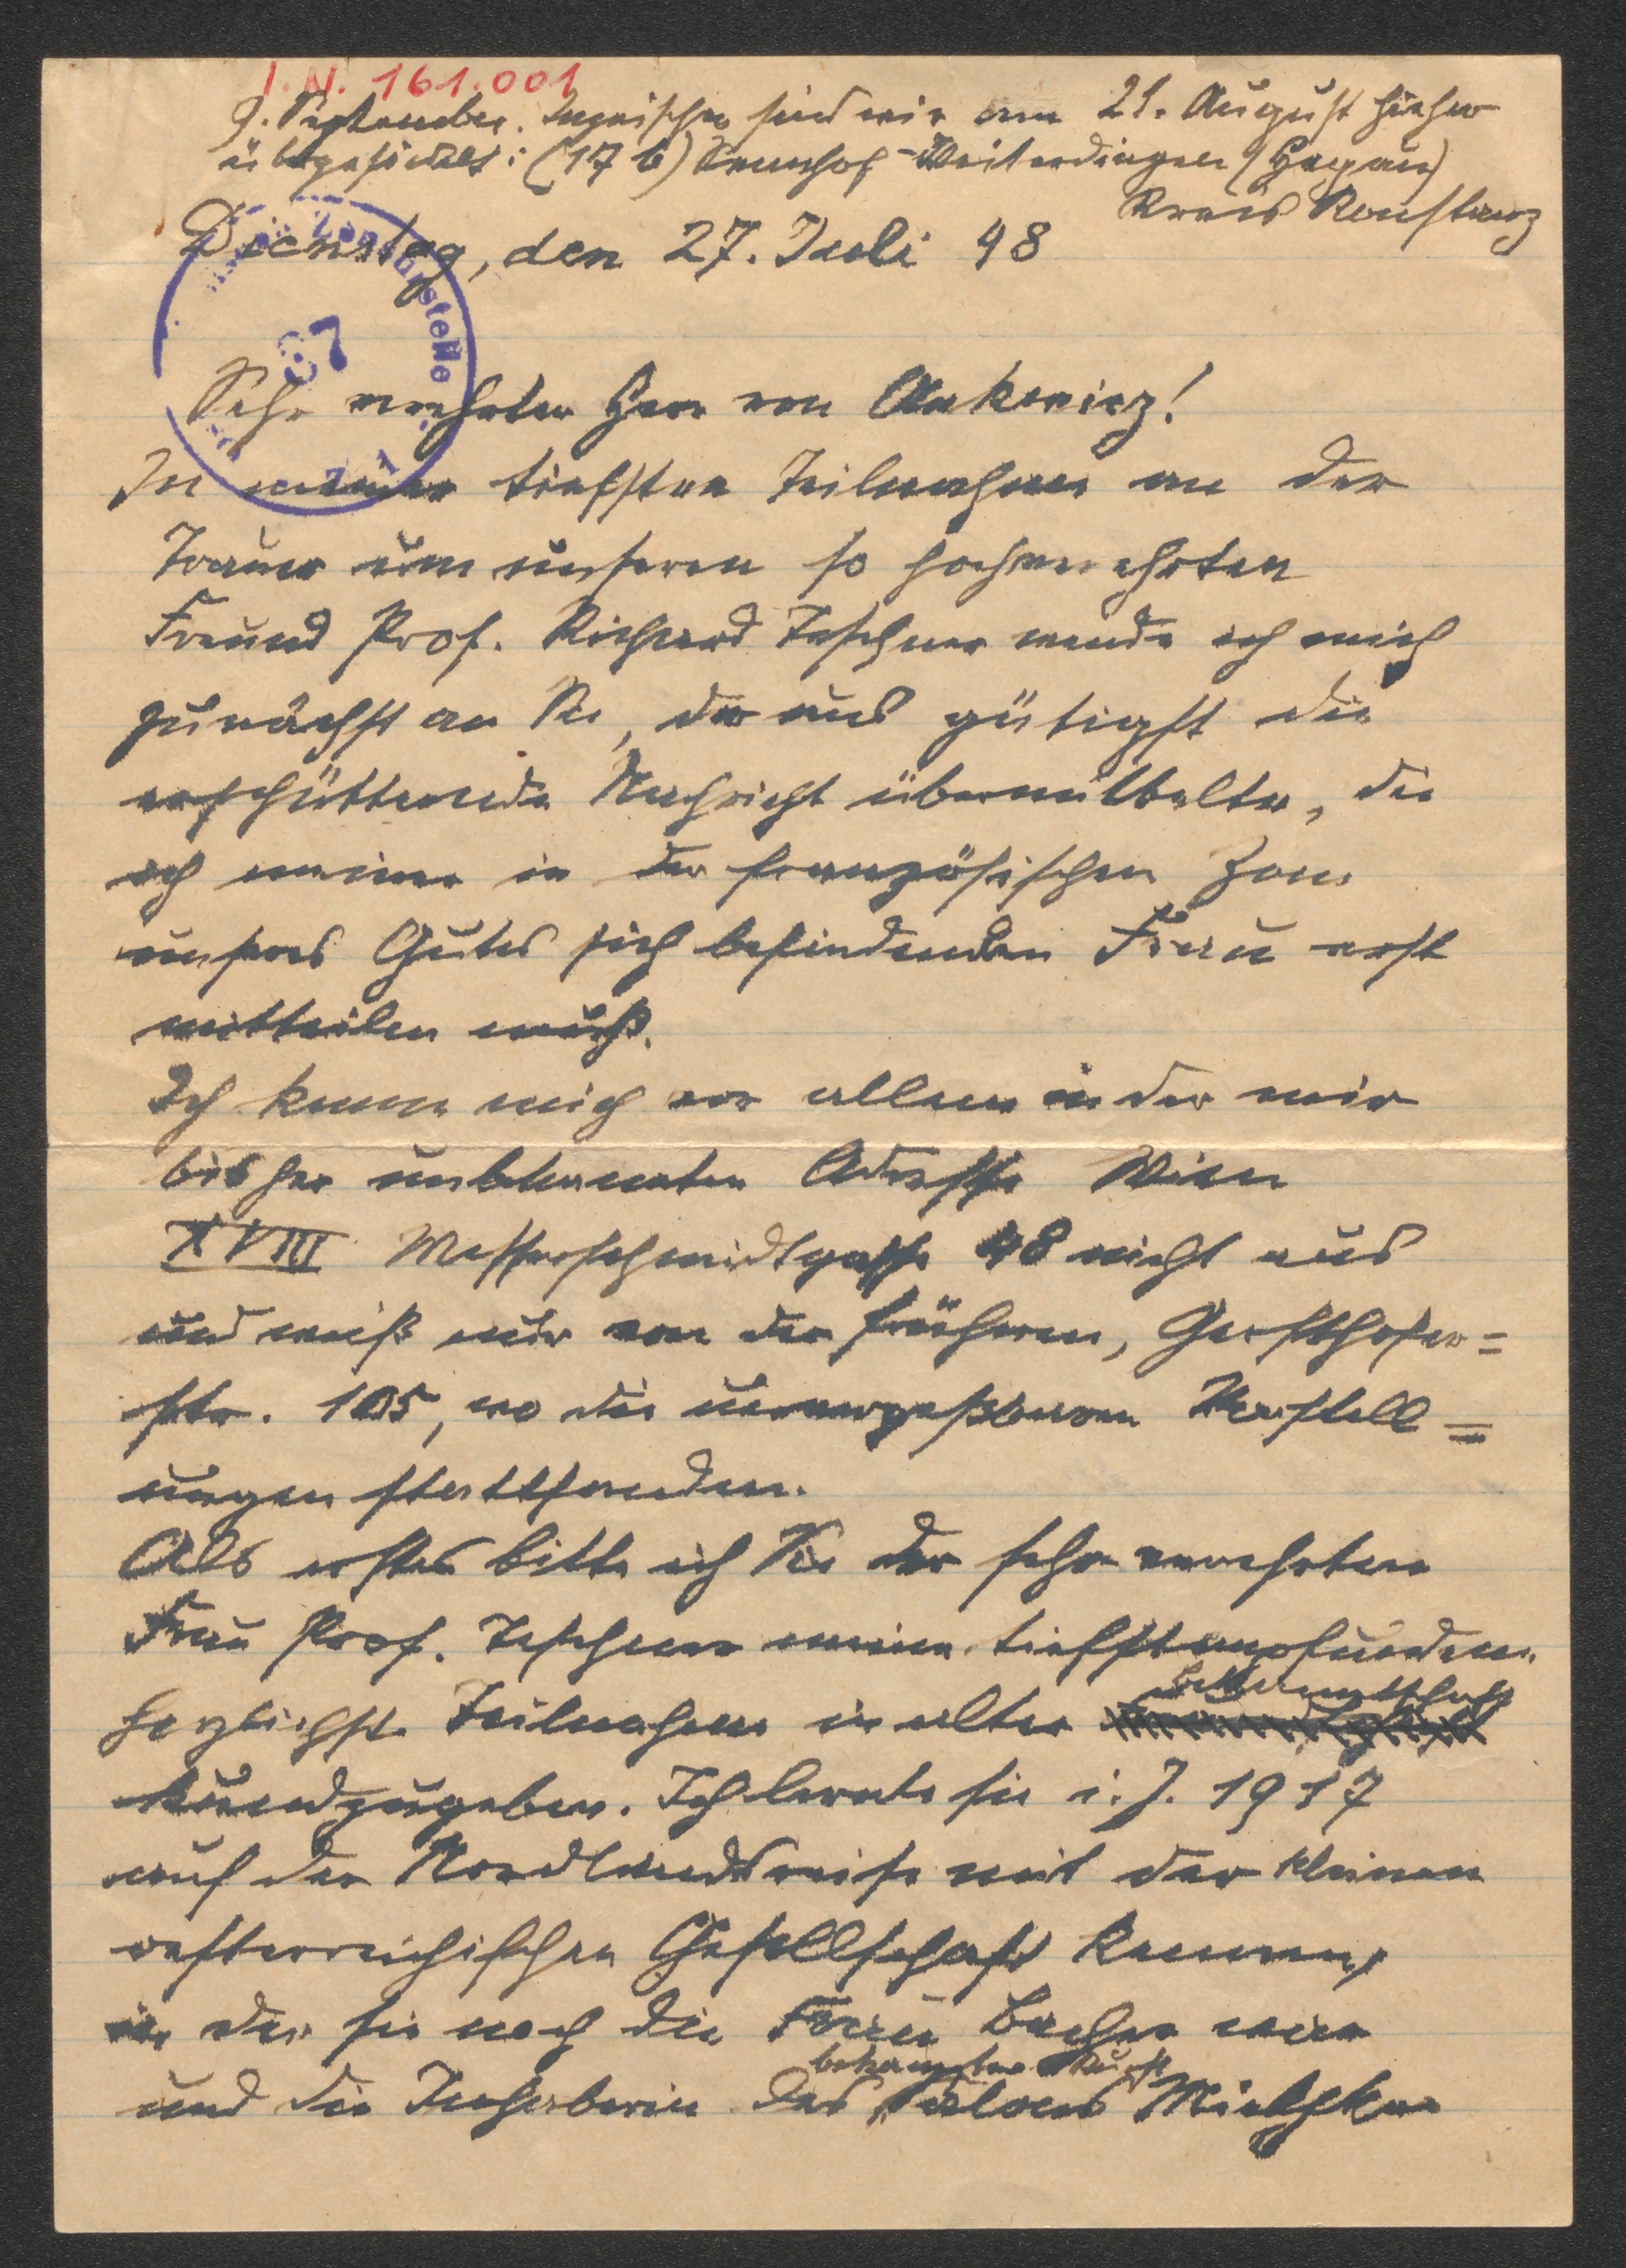 I.N. 161.001
9. September. Inzwischen sind wir am 21. August hieher
übergesiedelt: (17 b) Sennhof-Weiterdingen (Hegau)
Kreis Konstanz
Dienstag, den 27. Juli 48
37
Sehr verehrter Herr von
In meiner tiefsten Teilnahme an der
Trauer um unseren so hochverehrten
Freund Prof. Richard Teschner wende ich mich
zunächst an Sie, der uns gütigst die
erschütternde Nachricht übermittelte, die
ich meiner in der französischen Zone
unseres Gutes sich befindenden Frau erst
mitteilen muß.
Ich kenne mich vor allem in der mir
bisher unbekannten Adresse Wien
XVIII Messerschmidtgasse 48 nicht aus
und weiß nur von der früheren, Gersthofer=
str. 105, wo die unvergeßbaren Vorstell=
ungen stattfanden.
Als erstes bitte ich Sie der sehr verehrten
Frau Prof. Teschner meine tiefstempfundene
herzlichste Teilnahme in alter Bekanntschaft
kundzugeben. Ich lernte sie i. J. 1917
auf der Nordlandreise mit der kleinen
oesterreichischen Gesellschaft kennen,
in der sie noch die Frau Bacher war
und die Inhaberin des bekannten Kunst Salons Miethke